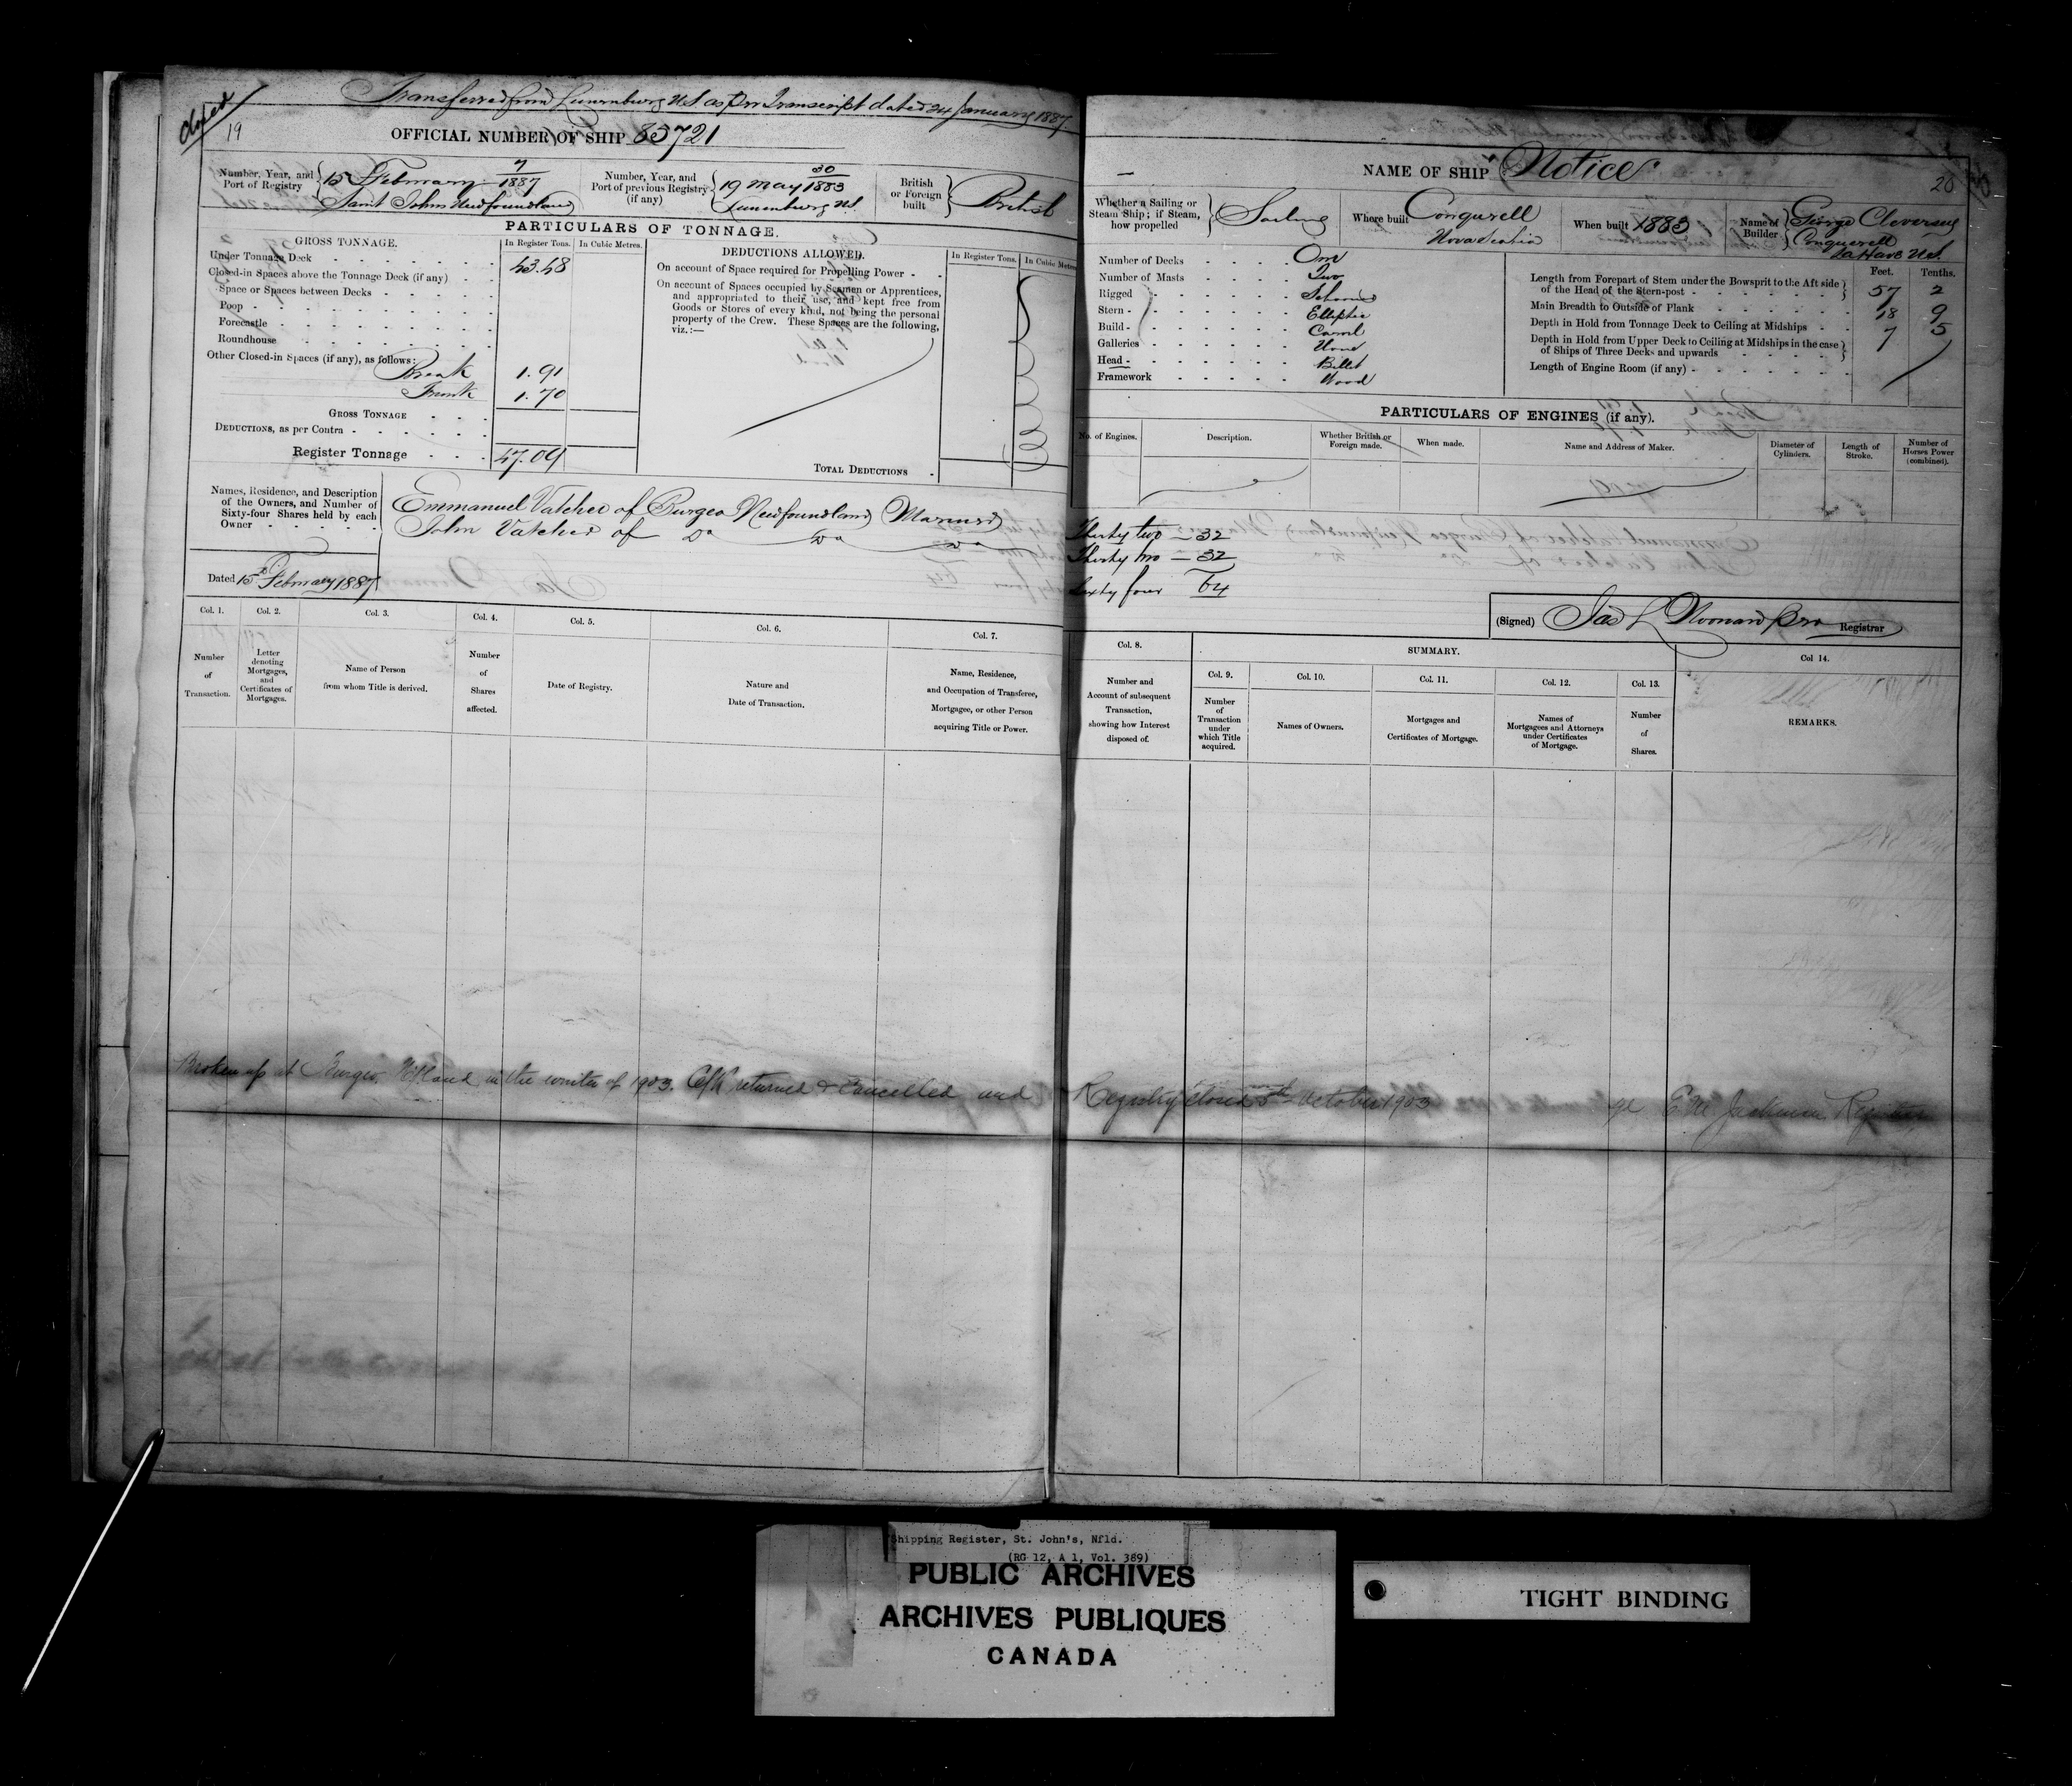 Closed
Transferred from Lunenburg N.S as per Transcript dated 24 January 1887.
19
OFFICIAL NUMBER OF SHIP 83721
Number, Year, and Port of Registry
7
15 February 1887
Saint Johns Newfoundland
Number, Year, and Port of previous Registry (if any)
30
19 May 1883
Lunenburg N.S.
British or Foreign built
British
PARTICULARS OF TONNAGE.
GROSS TONNAGE. In Register Tons. In Cubic Metres.
Under Tonnage Deck 43.48
Closed-in Spaces above the Tonnage Deck (if any)
Space or Spaces between Decks
Poop
Forecastle
Roundhouse
Other Closed-in Spaces (if any), as follows:
Break 1.91
Trunk 1.70
GROSS TONNAGE
DEDUCTIONS, as per Contra
Register Tonnage 47.09
DEDUCTIONS ALLOWED. In Register Tons. In Cubic Metres
On account of Space required for Propelling Power
On account of Spaces occupied by Seamen or Apprentices,
and appropriated to their use, and kept free from
Goods or Stores of every kind, not being the personal
property of the Crew. These Spaces are the following,
viz.:—
TOTAL DEDUCTIONS
Names, Residence, and Description
of the Owners, and Number of
Sixty-four Shares held by each
Owner
Emmanuel Vatcher of Burgeo Newfoundland Mariner
John Vatcher of Do Do Do
Dated 15 February 1887
Col. 1. Col. 2. Col. 3. Col. 4. Col. 5. Col. 6. Col. 7.
Number of Transaction.
Letter denoting Mortgages, and Certificates of Mortgages.
Name of Person from whom Title is derived.
Number of Shares affected.
Date of Registry.
Nature and Date of Transaction.
Name, Residence, and Occupation of Transferee, Mortgagee, or other Person acquiring Title or Power.
NAME OF SHIP Notice
20
Whether a Sailing or Steam Ship; if Steam, how propelled
Sailing
Where built Conquerell
Nova Scotia
When built 1883
Name of Builder
George Cleversey
Conquerell
La Have N.S.
Number of Decks One
Number of Masts Two
Rigged Schooner
Stern Elliptic
Build Carvel
Galleries None
Head Billet
Framework Wood
Feet. Tenths.
Length from Forepart of Stem under the Bowsprit to the Aft side
of the Head of the Stern-post 57 2
Main Breadth to Outside of Plank 18 9
Depth in Hold from Tonnage Deck to Ceiling at Midships 7 5
Depth in Hold from Upper Deck to Ceiling at Midships in the case
of Ships of Three Decks and upwards
Length of Engine Room (if any)
PARTICULARS OF ENGINES (if any).
No. of Engines. Description. Whether British or Foreign made. When made. Name and Address of Maker. Diameter of Cylinders. Length of Stroke. Number of Horses Power (combined).
Thirty two — 32
Thirty two — 32
Sixty four 64
(Signed) Jas L Noonan Registrar
Col. 8. SUMMARY. Col 14.
Col. 9. Col. 10. Col. 11. Col. 12. Col. 13.
Number and Account of subsequent Transaction, showing how Interest disposed of.
Number of Transaction under which Title acquired.
Names of Owners.
Mortgages and Certificates of Mortgage.
Names of Mortgagees and Attorneys under Certificates of Mortgage.
Number of Shares.
REMARKS.
Broken up at Burgeo, Nfland in the winter of 1903. C/R returned & Cancelled and Registry closed 5th October 1903 Jackman Registrar
Shipping Register, St. John's, Nfld.
(RG 12, A 1, Vol. 389)
PUBLIC ARCHIVES
ARCHIVES PUBLIQUES
CANADA
TIGHT BINDING